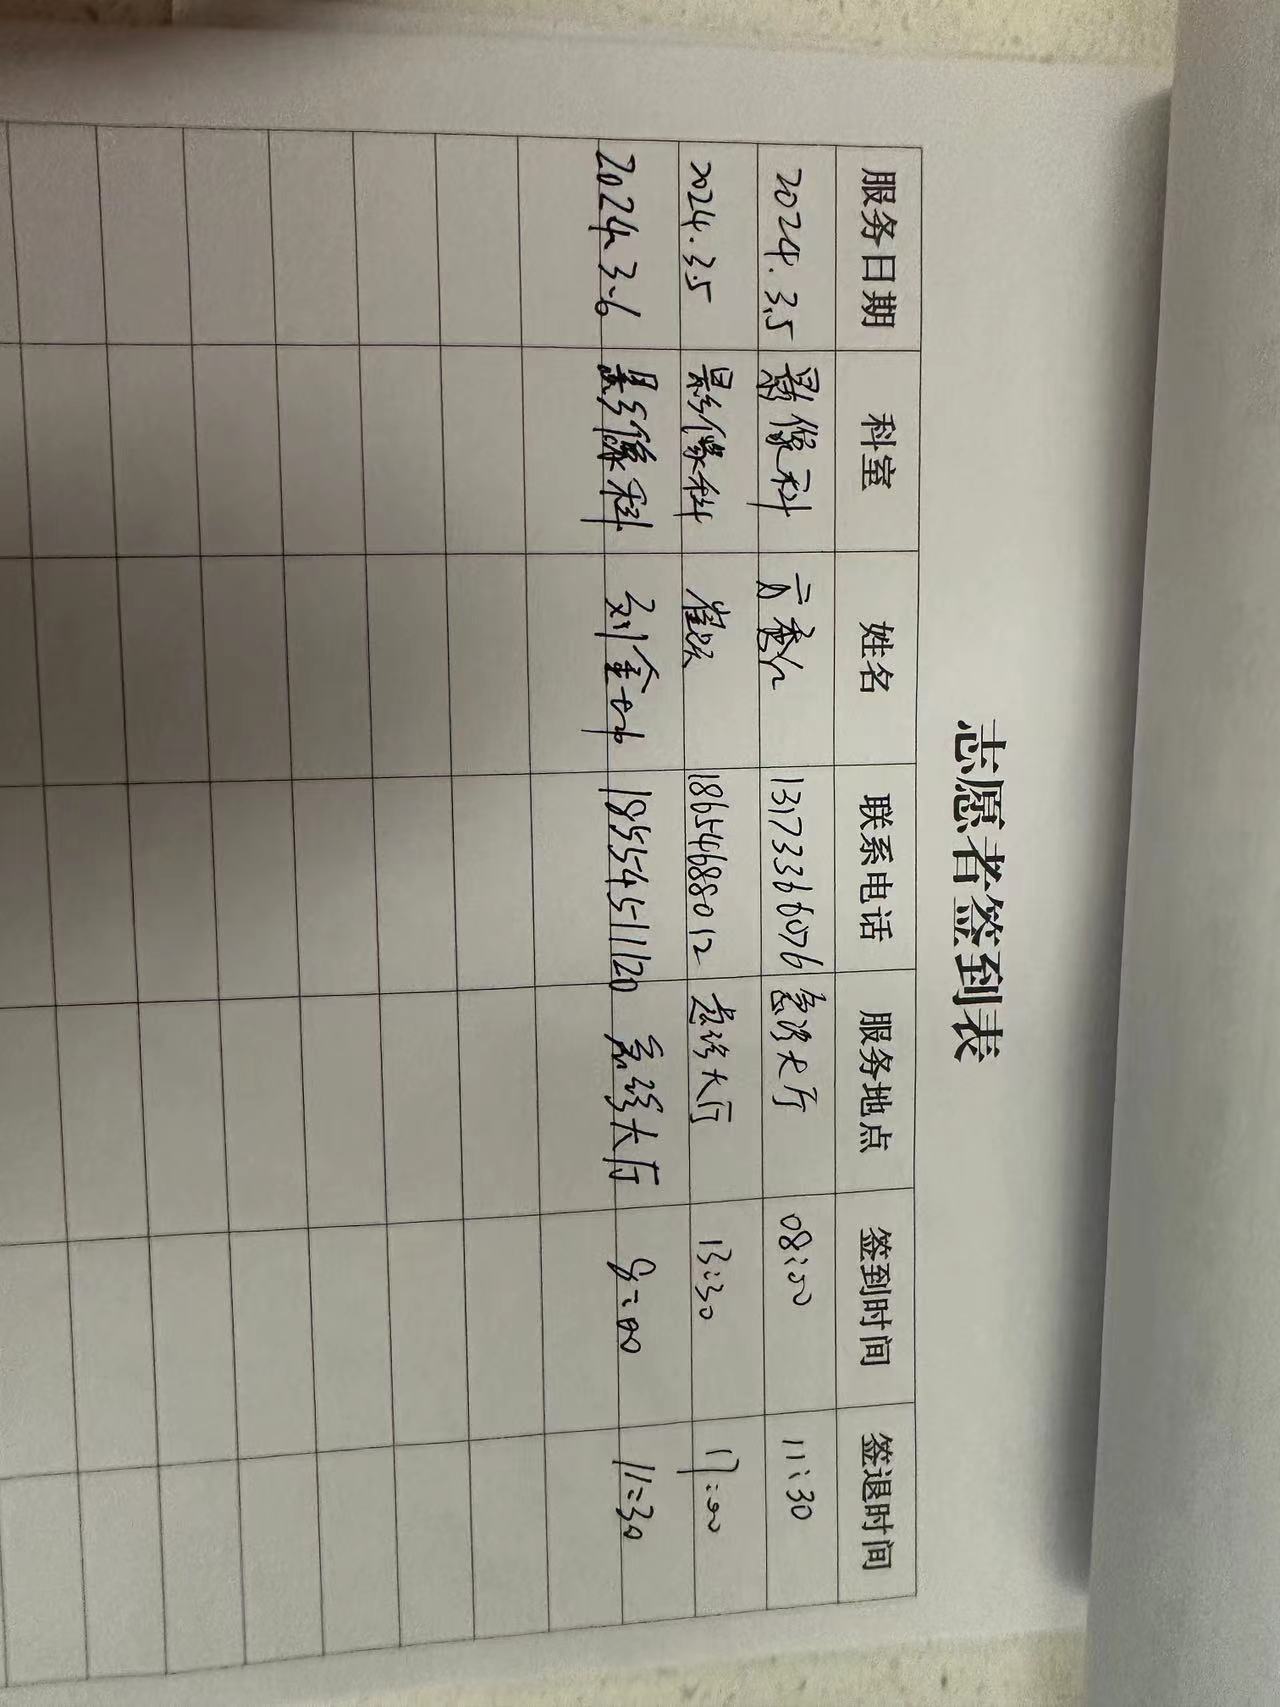 志愿者签到表
服务日期 科室 姓名 联系电话 服务地点 签到时间 签退时间
2024.3.5 影像科 13173366076 急诊大厅 08:00 11:30
2024.3.5 影像科 18654688012 急诊大厅 13:30 17:00
2024.3.6 影像科 刘金 18554511120 急诊大厅 8:00 11:30